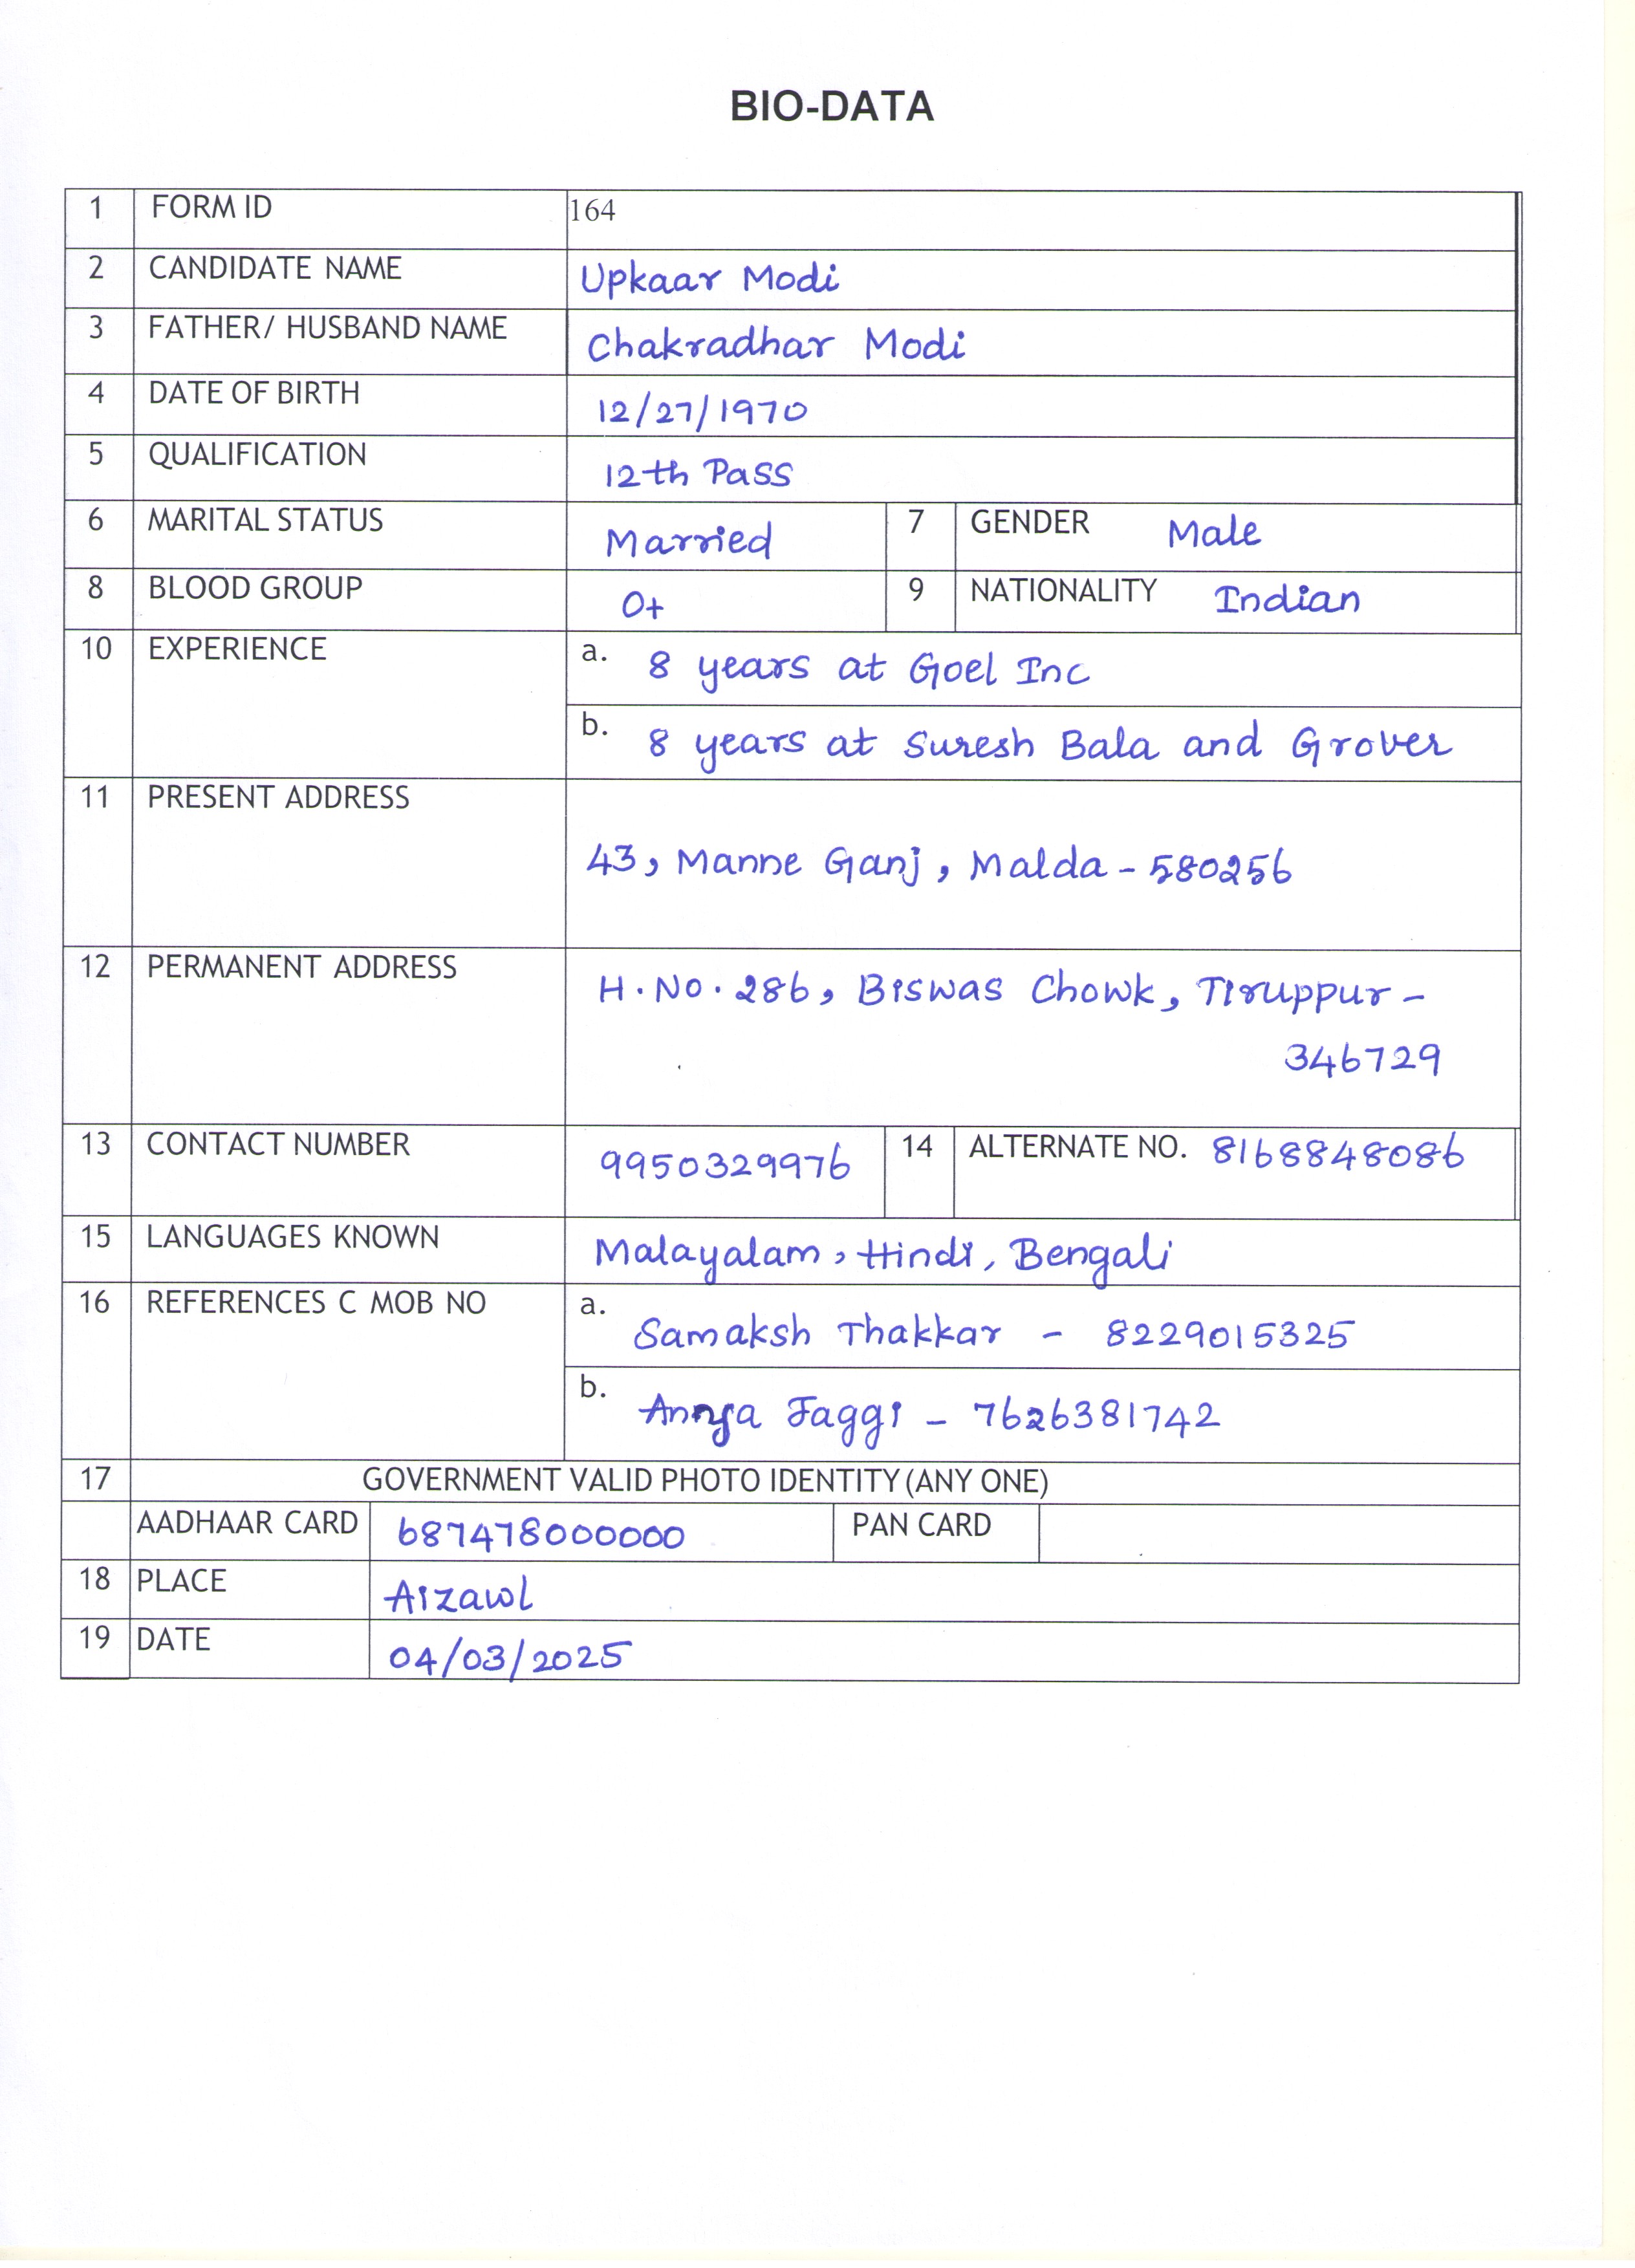 BIO-DATA
1 FORM ID 164
2 CANDIDATE NAME Upkaar Modi
3 FATHER/ HUSBAND NAME Chakradhar Modi
4 DATE OF BIRTH 12/27/1970
5 QUALIFICATION 12th Pass
6 MARITAL STATUS Married 7 GENDER Male
8 BLOOD GROUP O+ 9 NATIONALITY Indian
10 EXPERIENCE a. 8 years at Goel Inc
b. 8 years at Suresh Bala and Grover
11 PRESENT ADDRESS
43, Manne Ganj, Malda - 580256
12 PERMANENT ADDRESS H.No. 286, Biswas Chowk, Tiruppur -
346729
13 CONTACT NUMBER 9950329976 14 ALTERNATE NO. 8168848086
15 LANGUAGES KNOWN Malayalam, Hindi, Bengali
16 REFERENCES C MOB NO a. Samaksh Thakkar - 8229015325
b. Jaggi - 7626381742
17 GOVERNMENT VALID PHOTO IDENTITY (ANY ONE)
AADHAAR CARD 687478000000 PAN CARD
18 PLACE Aizawl
19 DATE 04/03/2025